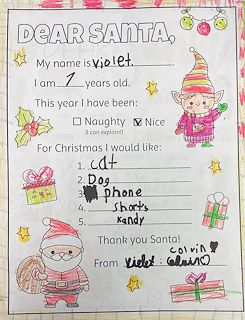 DEAR SANTA,
My name is violet.
I am 7 years old.
This year I have been:
Naughty Nice
(I can explain!)
For Christmas I would like:
1. cat
2. Dog
3. phone
4. Shorts
5. kandy
Thank you Santa!
colvin
From violet :